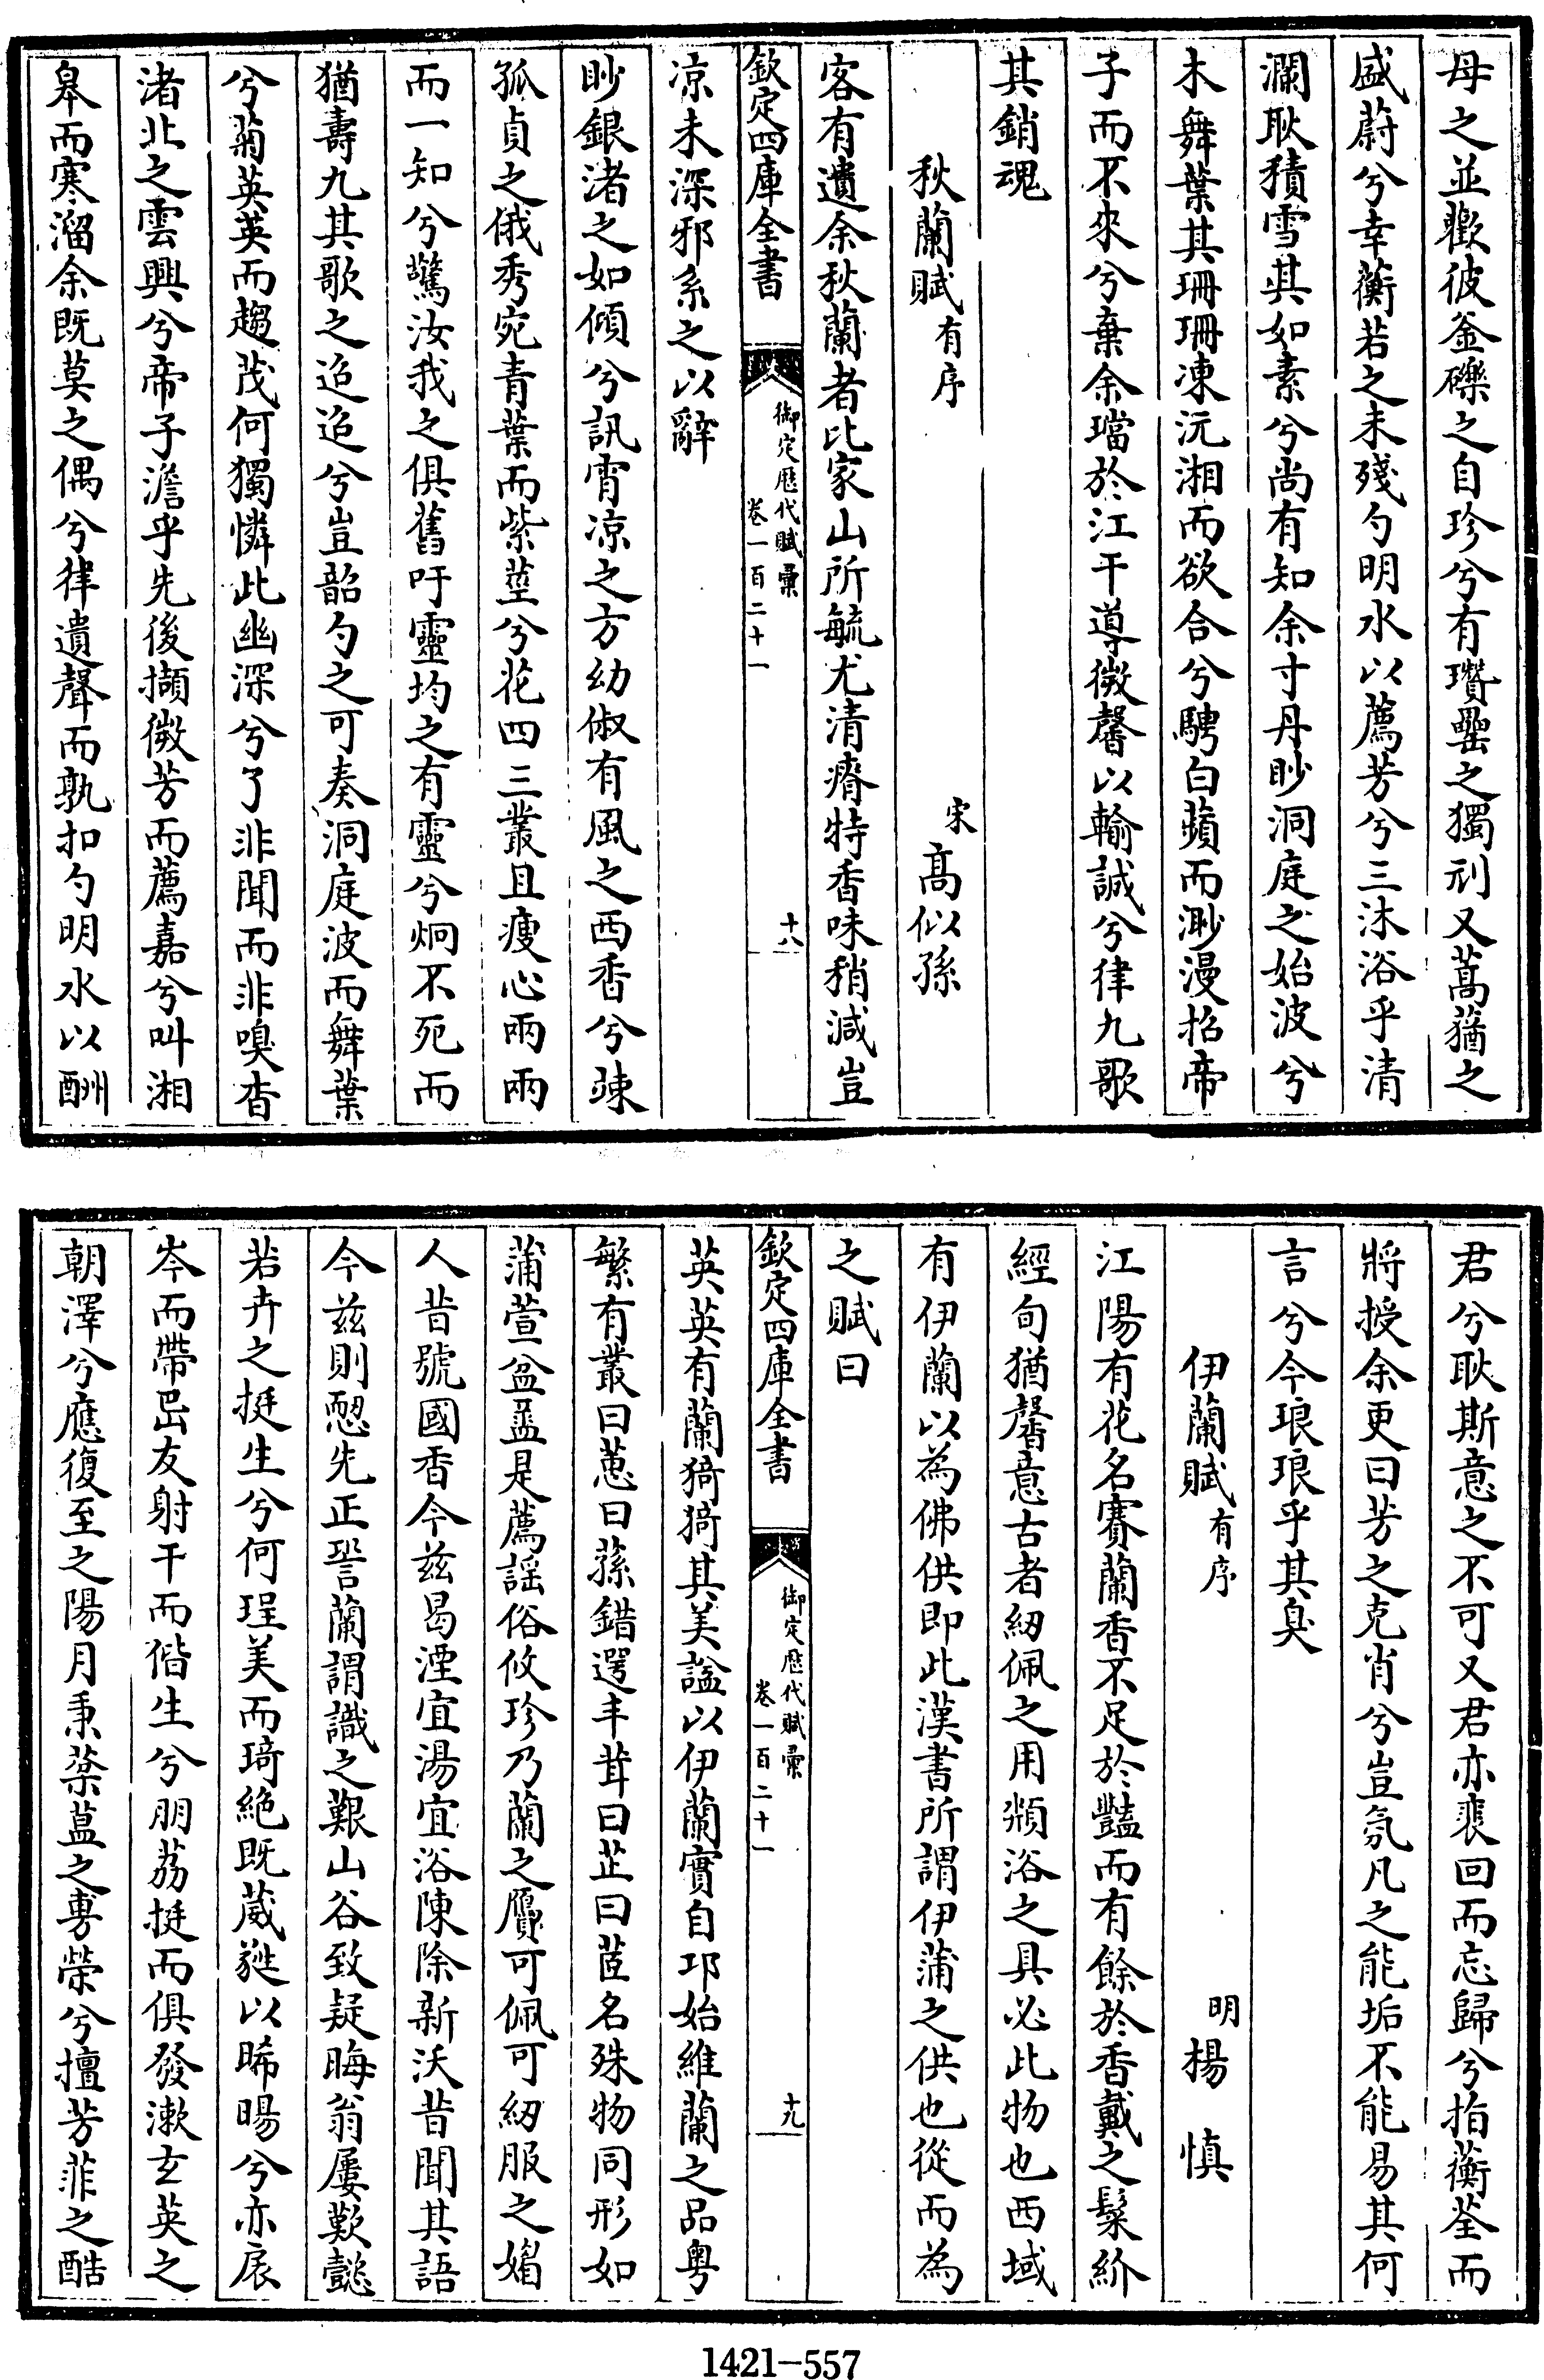 母之並歡彼釜礫之自珍兮有瓚罍之獨刓又萵蕕之
盛蔚兮幸蘅若之未殘勺明水以薦芳兮三沐浴乎清
瀾耿積雪其如素兮尚有知余寸丹眇洞庭之始波兮
木舞葉其珊珊凍沅湘而欲合兮騁白蘋而渺漫招帝
子而不來兮棄余璫於江干導微馨以輸誠兮律九歌
其銷魂
秋蘭賦有序 宋高似孫
客有遺余秋蘭者比家山所毓尤清瘠特香味稍減豈
欽定四庫全書 御定歷代賦彙 卷一百二十一 十八
凉未深邪系之以辭
眇銀渚之如傾兮訊宵凉之方幼俶有風之西香兮竦
孤貞之俄秀宛青葉而紫莖兮花四三叢且瘦心兩兩
而一知兮驚汝我之俱舊吁靈均之有靈兮炯不死而
猶壽九其歌之迢迢兮豈韶勺之可奏洞庭波而舞葉
兮菊英英而趨茂何獨憐此幽深兮了非聞而非嗅杳
渚北之雲興兮帝子澹乎先後擷微芳而薦嘉兮叫湘
皋而寒溜余既莫之偶兮律遺聲而孰扣勺明水以酬
君兮耿斯意之不可又君亦裴回而忘歸兮指蘅荃而
將授余更曰芳之克肖兮豈氛凡之能垢不能易其何
言兮今琅琅乎其臭
伊蘭賦有序 明楊慎
江陽有花名賽蘭香不足於豔而有餘於香戴之髮紒
經旬猶馨意古者紉佩之用頮浴之具必此物也西域
有伊蘭以為佛供即此漢書所謂伊蒲之供也從而為
之賦曰
欽定四庫全書 御定歷代賦彙 卷一百二十一 十九
英英有蘭猗猗其美諡以伊蘭實自邛始維蘭之品粤
繁有叢曰蕙曰蓀錯遌丰茸曰芷曰茝名殊物同形如
蒲萱盆盎是薦謡俗攸珍乃蘭之贗可佩可紉服之媚
人昔號國香今兹曷湮宜湯宜浴陳除新沃昔聞其語
今兹則惄先正訔蘭謂識之艱山谷致疑晦翁屢歎懿
若卉之挺生兮何珵美而琦絶既葳蕤以晞暘兮亦扆
岑而帶岊友射干而偕生兮朋荔挺而俱發漱玄英之
朝澤兮應復至之陽月秉蘂蒀之旉榮兮擅芳菲之酷
1421-557